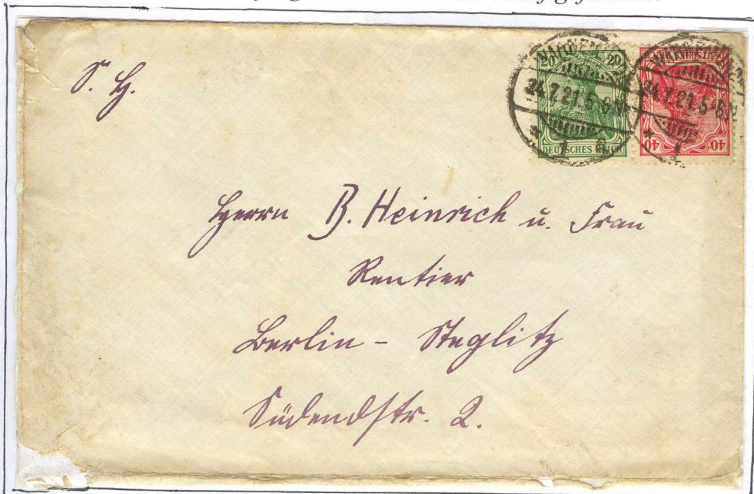 S. H.
20 20
DEUTSCHES REICH
24.7.21.5-6N
40 40
24.7.21.5-6N
Herrn B. Heinrich u. Frau
Rentier
Berlin - Steglitz
Südendstr. 2.